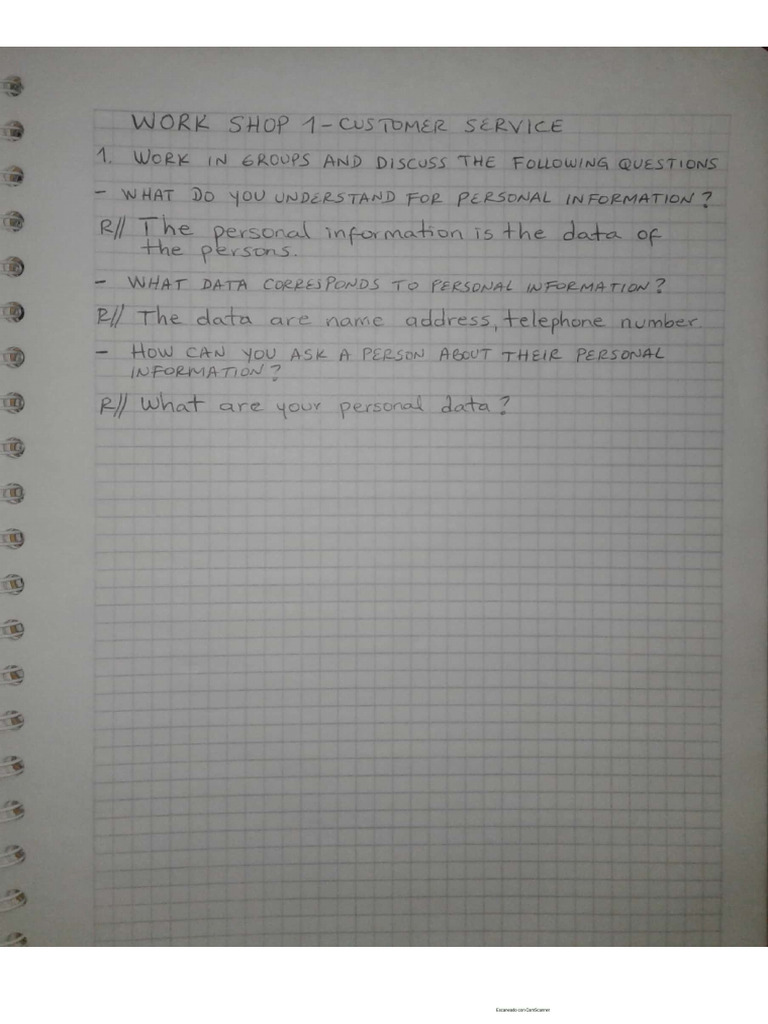 WORK SHOP 1 - CUSTOMER SERVICE
1. WORK IN GROUPS AND DISCUSS THE FOLLOWING QUESTIONS
- WHAT DO YOU UNDERSTAND FOR PERSONAL INFORMATION?
R// The personal information is the data of
the persons.
- WHAT DATA CORRESPONDS TO PERSONAL INFORMATION?
R// The data are name address, telephone number.
- HOW CAN YOU ASK A PERSON ABOUT THEIR PERSONAL
INFORMATION?
R// What are your personal data?
Escaneado con CamScanner